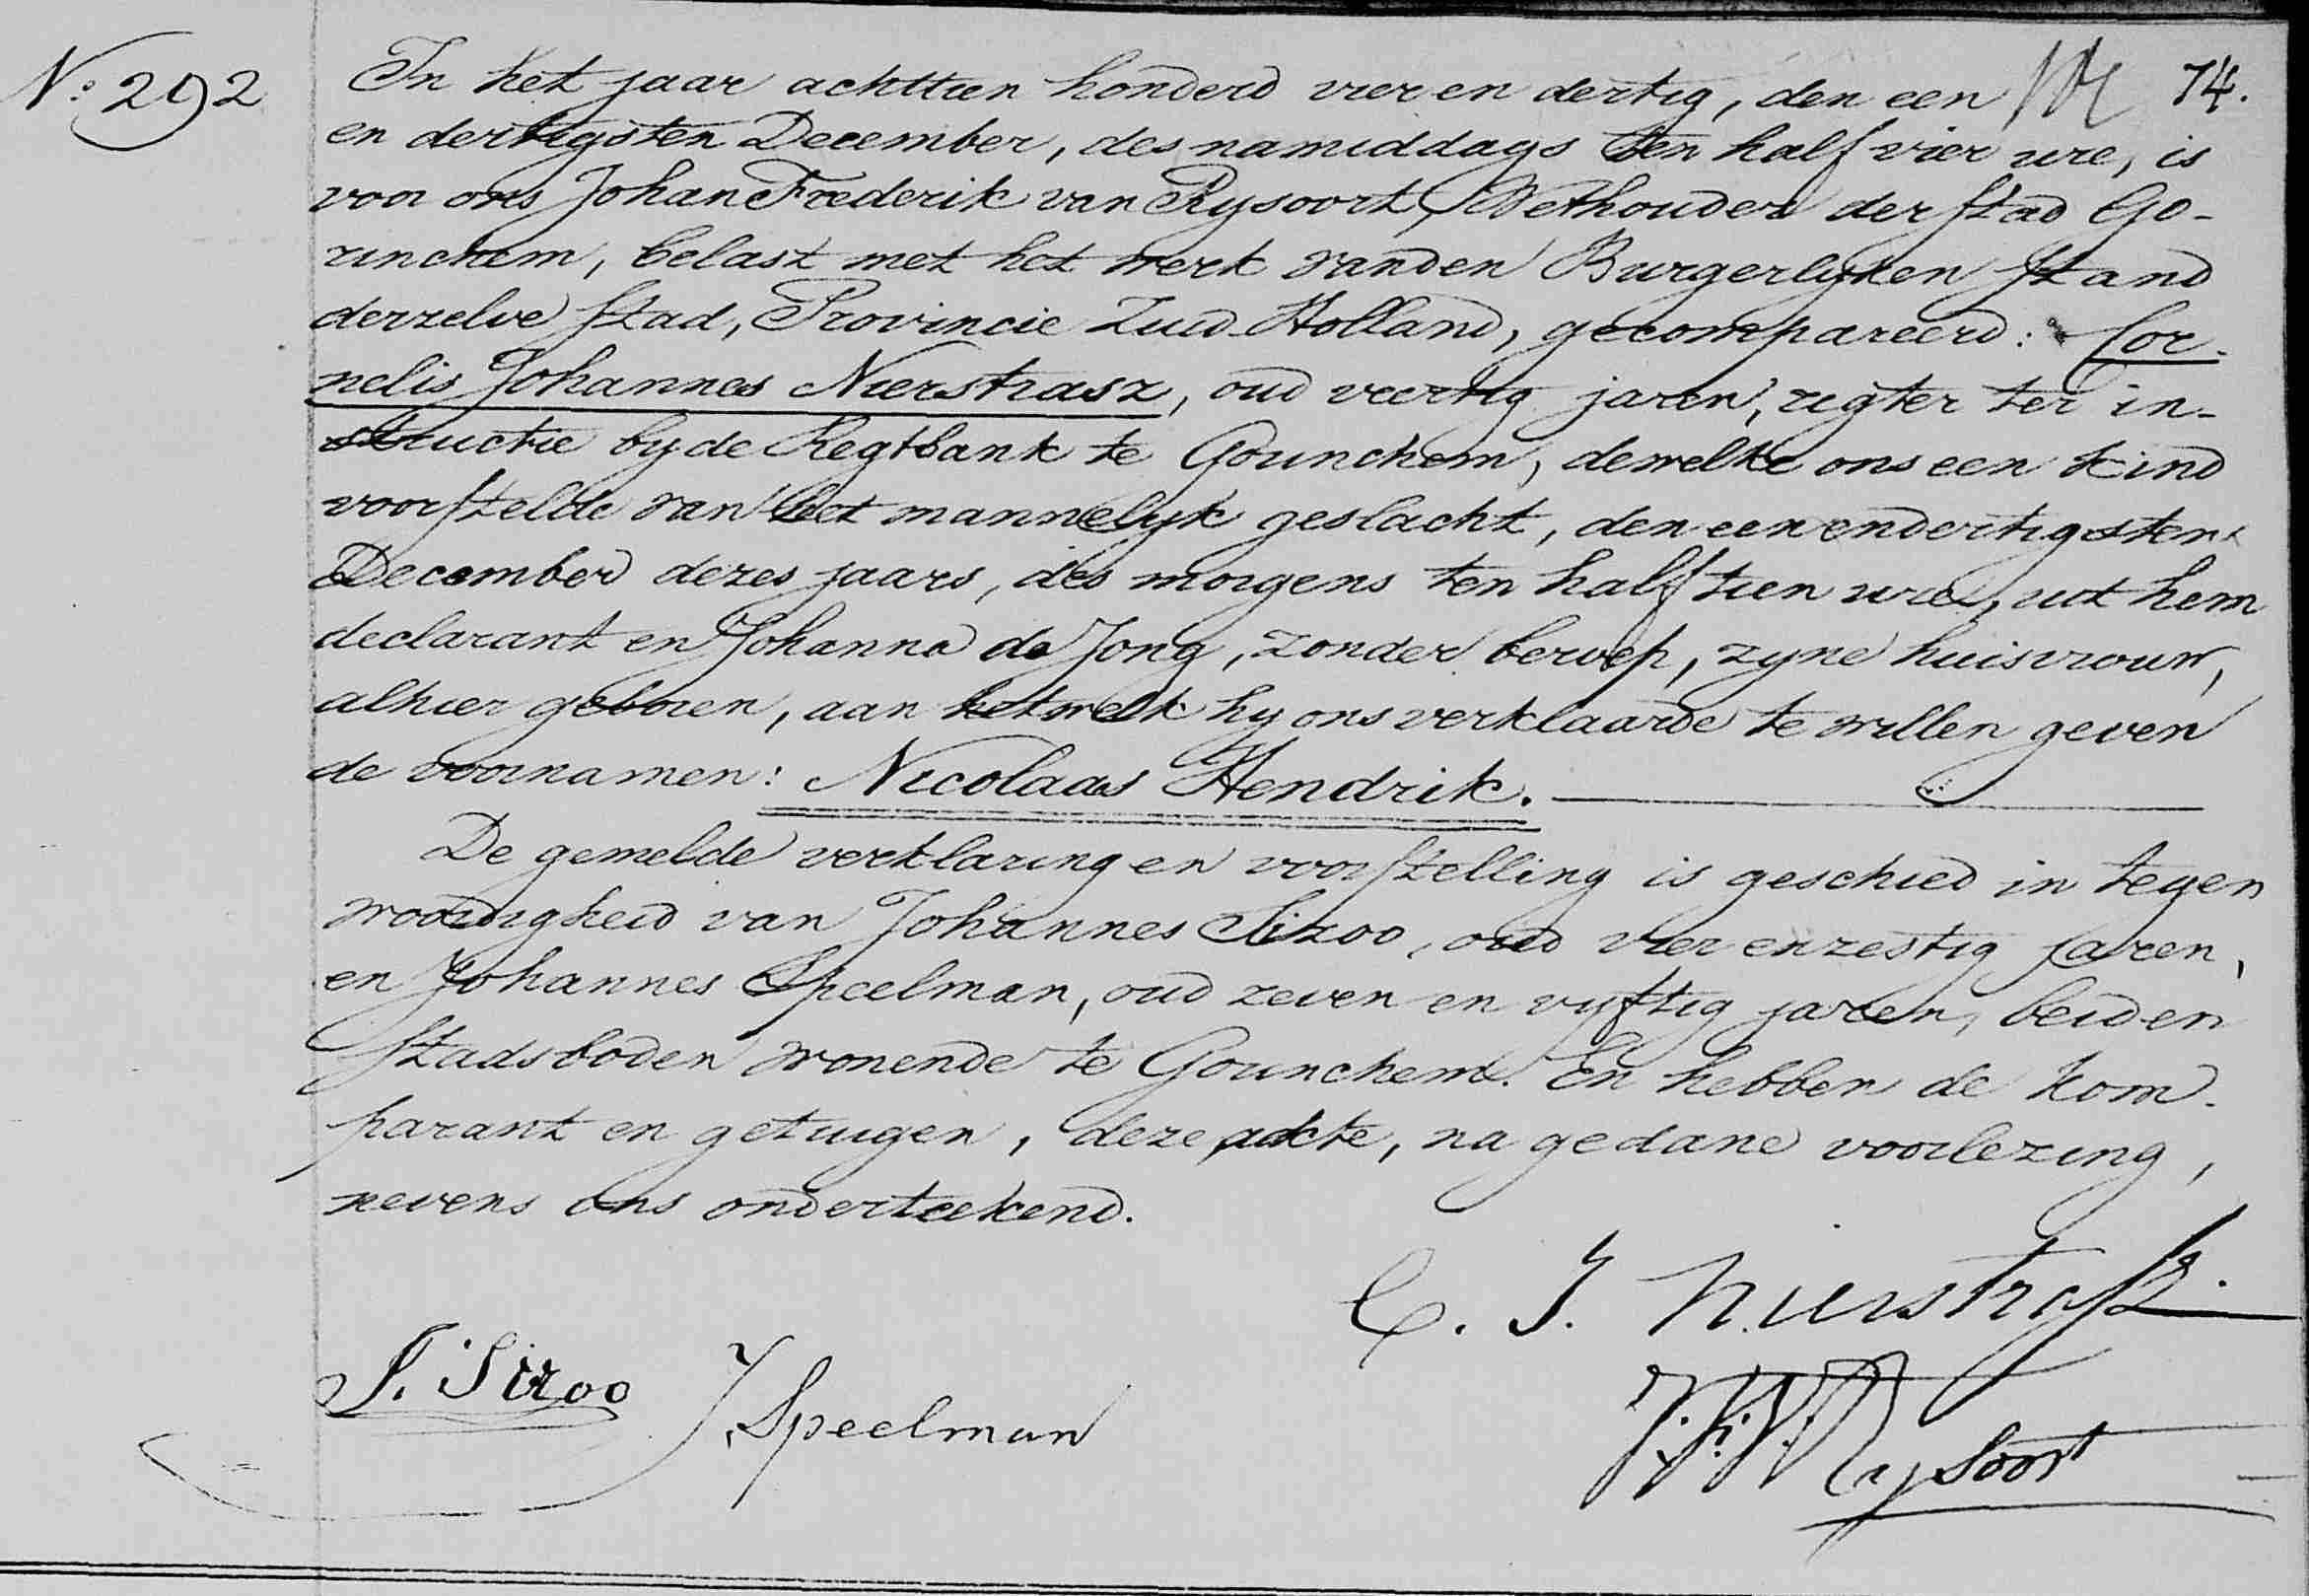 N: 292
In het jaar achttien honderd vier en dertig, den een 74.
en dertigsten December, des namiddags ten half vier ure, is
voor ons Johan Frederik van Rysoort, Wethouder der stad Go-
rinchem, belast met het werk van den Burgerlyken stand
derzelve stad, Provincie Zuid-Holland, gecompareerd: Cor-
nelis Johannes Nierstrasz, oud veertig jaren, regter ter in-
structie by de Regtbank te Gorinchem, dewelke ons een kind
voorstelde van het mannelyk geslacht, den een en dertigsten
December dezes jaars, des morgens ten half tien ure, uit hem
declarant en Johanna de Jong, zonder beroep, zyne huisvrouw,
alhier geboren, aan hetwelk hy ons verklaarde te willen geven
de voornamen: Nicolaas Hendrik.
De gemelde verklaring en voorstelling is geschied in tegen
woordigheid van Johannes Sizoo, oud vier en zestig jaren,
en Johannes Speelman, oud zeven en vyftig jaren, beiden
stadsboden wonende te Gorinchem. En hebben de kom-
parant en getuigen, deze akte, na gedane voorlezing,
nevens ons onderteekend.
C. J. Nierstrasz.
J. Sizoo J Speelman
J. F. V. Rysoort